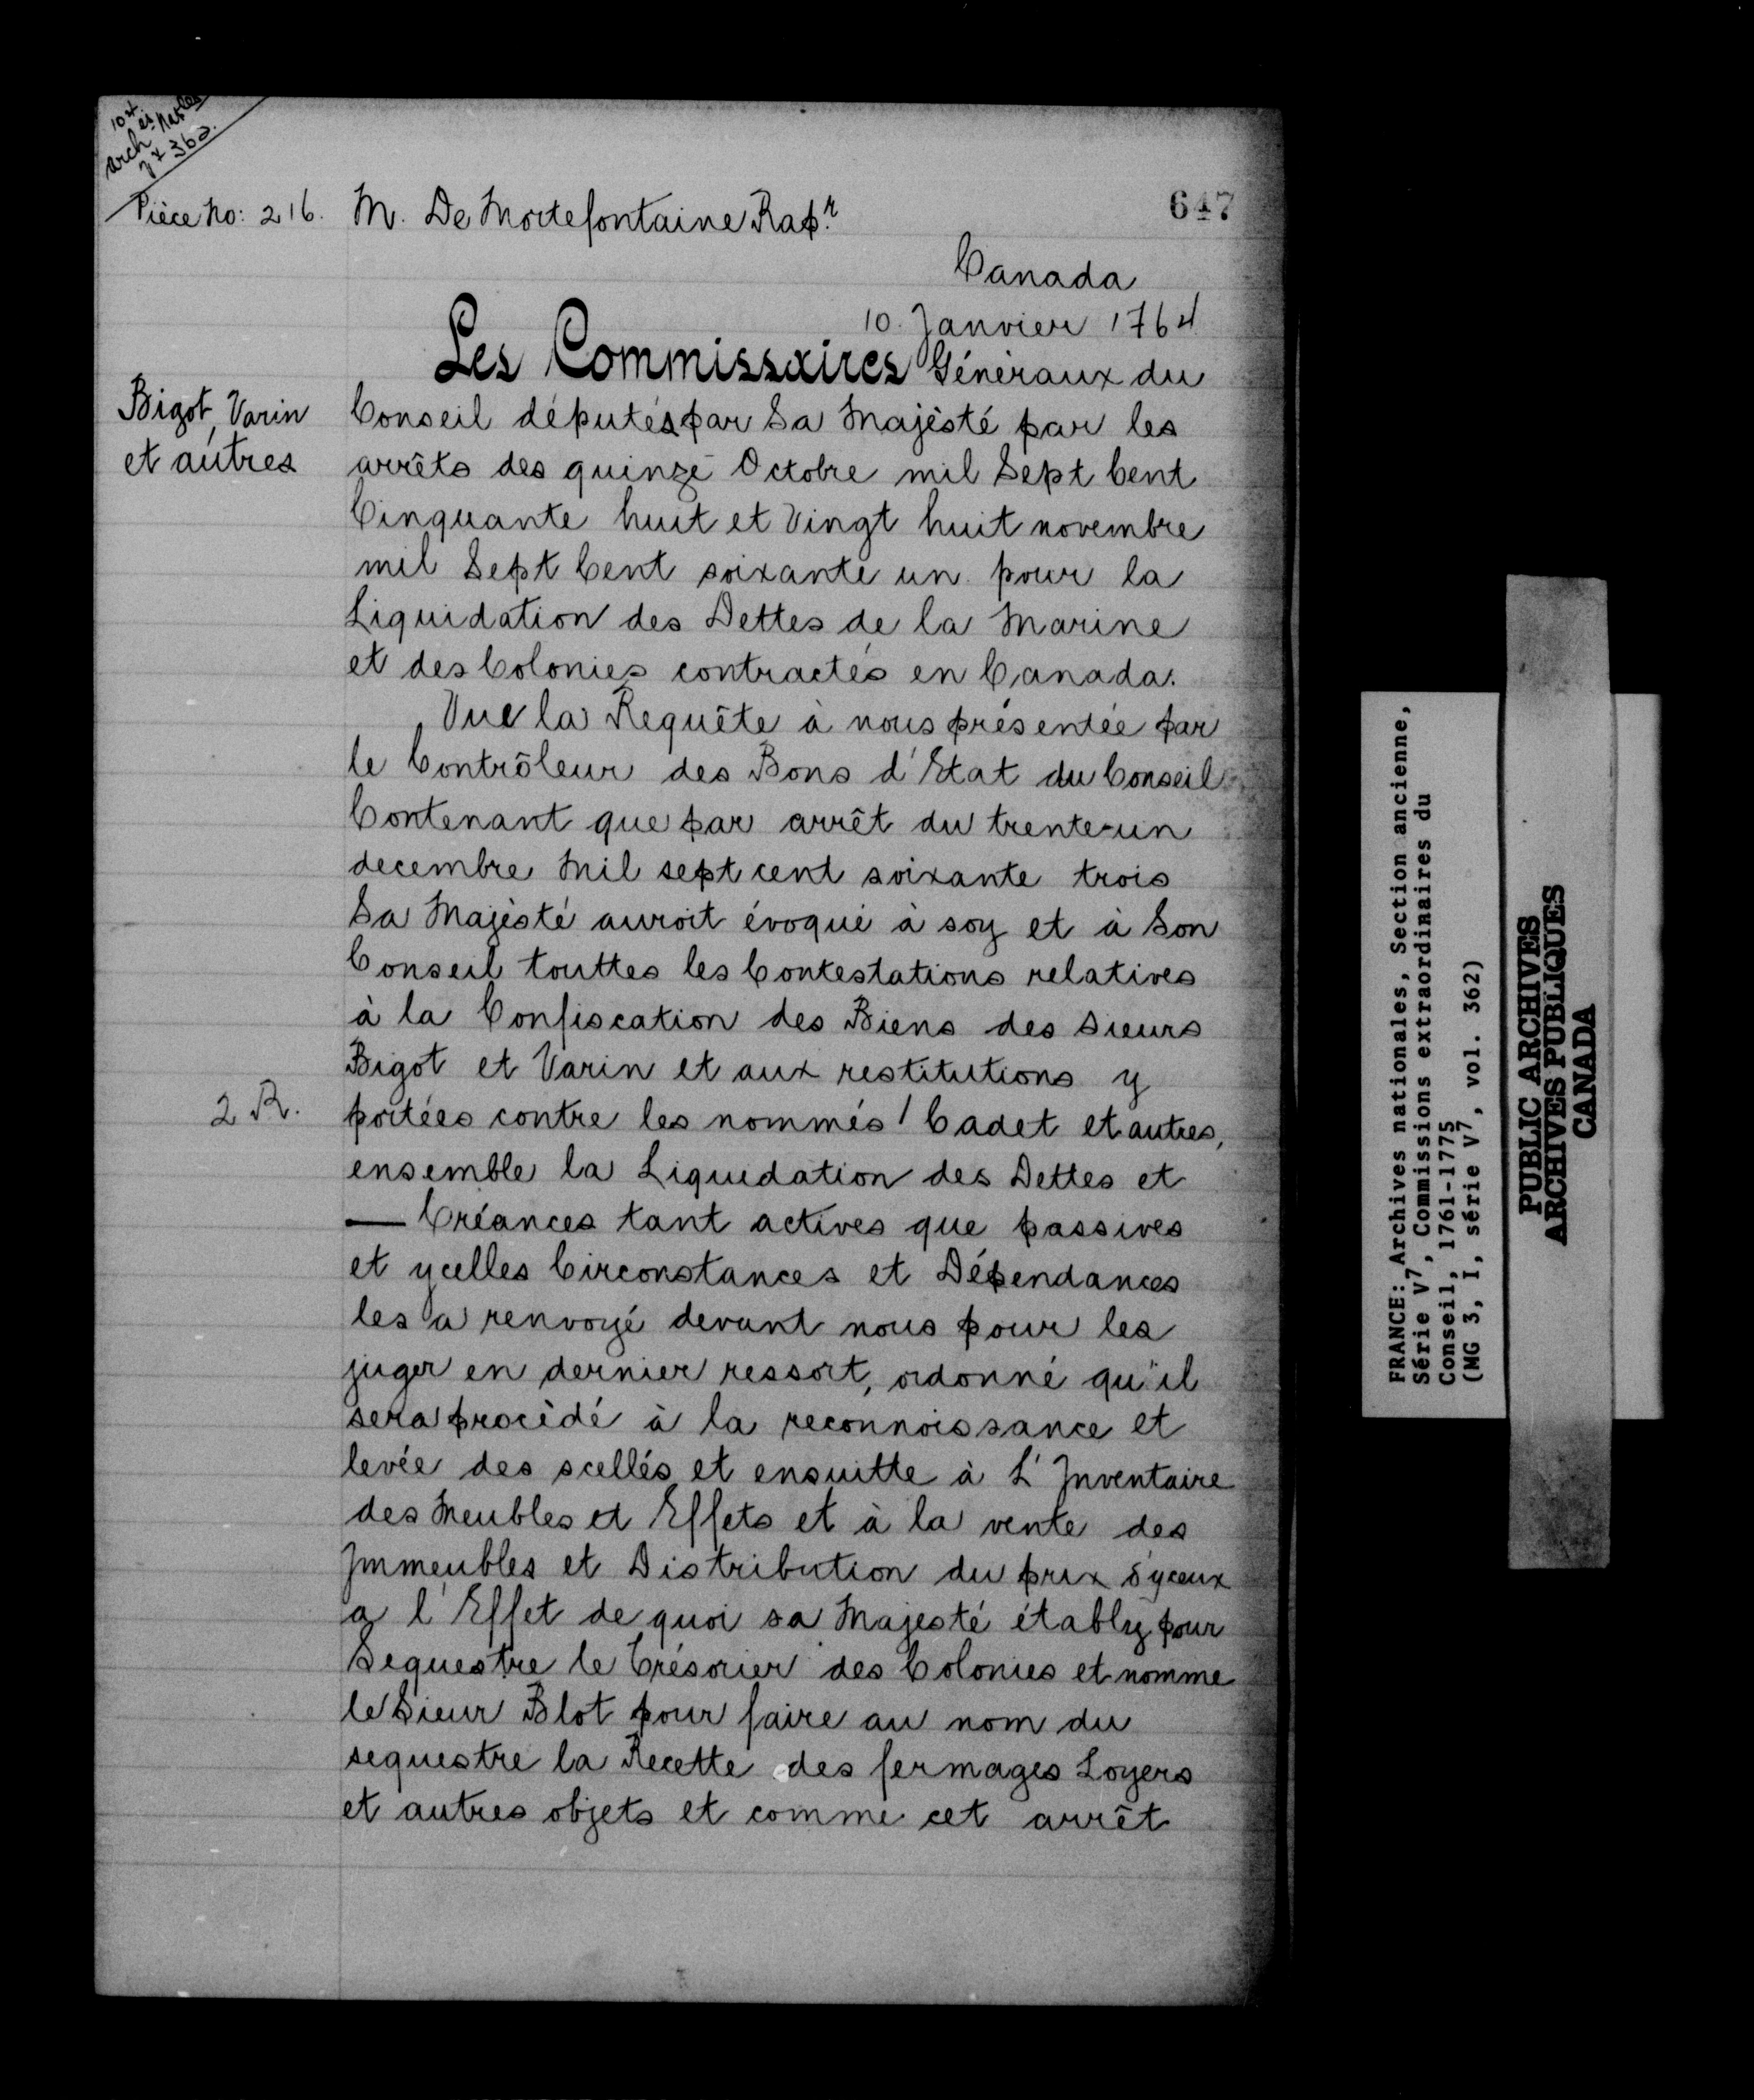 arch es nales
Pièce No: 216. M. De Mortefontaine Rapr 647
Canada
10. Janvier 1764
Les Commissaires Généraux du
Bigot, Varin
et autres
Conseil députés par Sa Majèsté par les
arrêts des quinze Octobre mil Sept Cent
Cinquante huit et Vingt huit novembre
mil Sept Cent soixante un pour la
Liquidation des Dettes de la Marine
et des Colonies contractés en Canada.
Vue la Requête à nous présentée par
le Contrôleur des Bons d'Etat du Conseil
Contenant que par arrêt du trente-un
decembre Mil sept cent soixante trois
Sa Majèsté auroit évoqué à soy et à Son
Conseil touttes les Contestations relatives
à la Confiscation des Biens des sieurs
Bigot et Varin et aux restitutions y
2 R.
portées contre les nommés / Cadet et autres,
ensemble la Liquidation des Dettes et
— Créances tant actives que passives
et ycelles Circonstances et Dépendances
les a renvoyé devant nous pour les
juger en dernier ressort, ordonné qu'il
sera procèdé à la reconnoissance et
levée des scellés et ensuitte à L'Inventaire
des Meubles et Effets et à la vente des
Immeubles et Distribution du prix d'yceux
a l'Effet de quoi sa Majesté établÿ pour
Sequestre le Trésorier des Colonies et nomme
le Sieur Blot pour faire au nom du
sequestre la Recette des fermages Loyers
et autres objets et comme cet arrêt
FRANCE: Archives nationales, Section ancienne,
Série V7, Commissions extraordinaires du
Conseil, 1761-1775
(MG 3, I, série V7, vol. 362)
PUBLIC ARCHIVES
ARCHIVES PUBLIQUES
CANADA